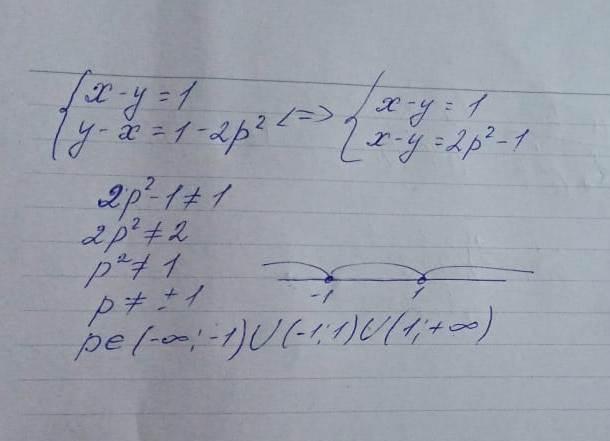 {x-y=1 <=> {x-y=1
{y-x=1-2p² {x-y=2p²-1
2p²-1≠1
2p²≠2
p²≠1
p≠±1
-1 1
p∈(-∞;-1)∪(-1;1)∪(1;+∞)